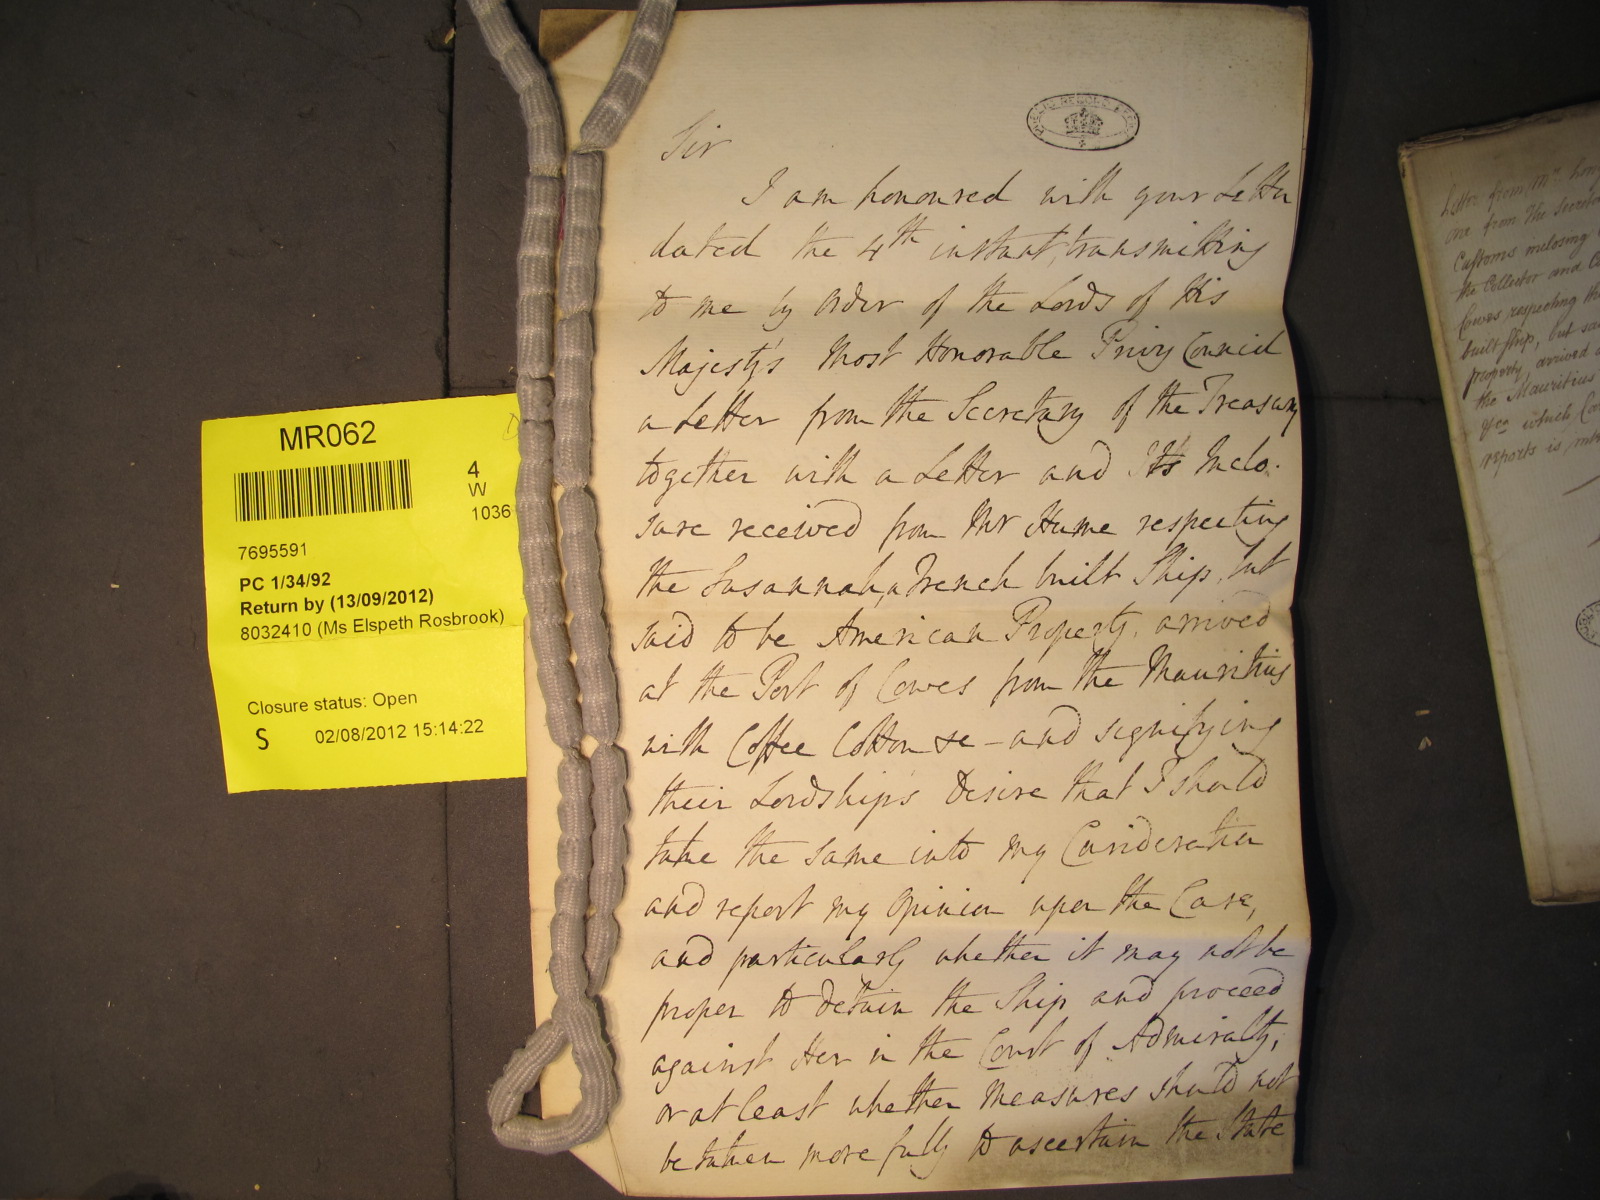 MR062
4
W
1036
7695591
PC 1/34/92
Return by (13/09/2012)
8032410 (Ms Elspeth Rosbrook)
Closure status: Open
S 02/08/2012 15:14:22
PUBLIC RECORD OFFICE
Sir
I am honoured with your Letter
dated the 4th instant, transmitting
to me by Order of the Lords of His
Majesty's Most Honorable Privy Council
a Letter from the Secretary of the Treasury
together with a Letter and Its Inclo-
sure received from Mr Hume respecting
the Susannah, a French built Ship, but
said to be American Property, arrived
at the Port of Cowes from the Mauritius
with Coffee Cotton &c - and signifying
their Lordships Desire that I should
take the same into my Consideration
and report my Opinion upon the Case,
and particularly whether it may not be
proper to detain the Ship and proceed
against Her in the Court of Admiralty,
or at least whether Measures should not
be taken more fully to ascertain the State
Letter from Mr
one from The Secretary
Customs inclosing
the Collector and
Cowes respecting the
built Ship, but said
property, arrived
the Mauritius
&ca which
reports is